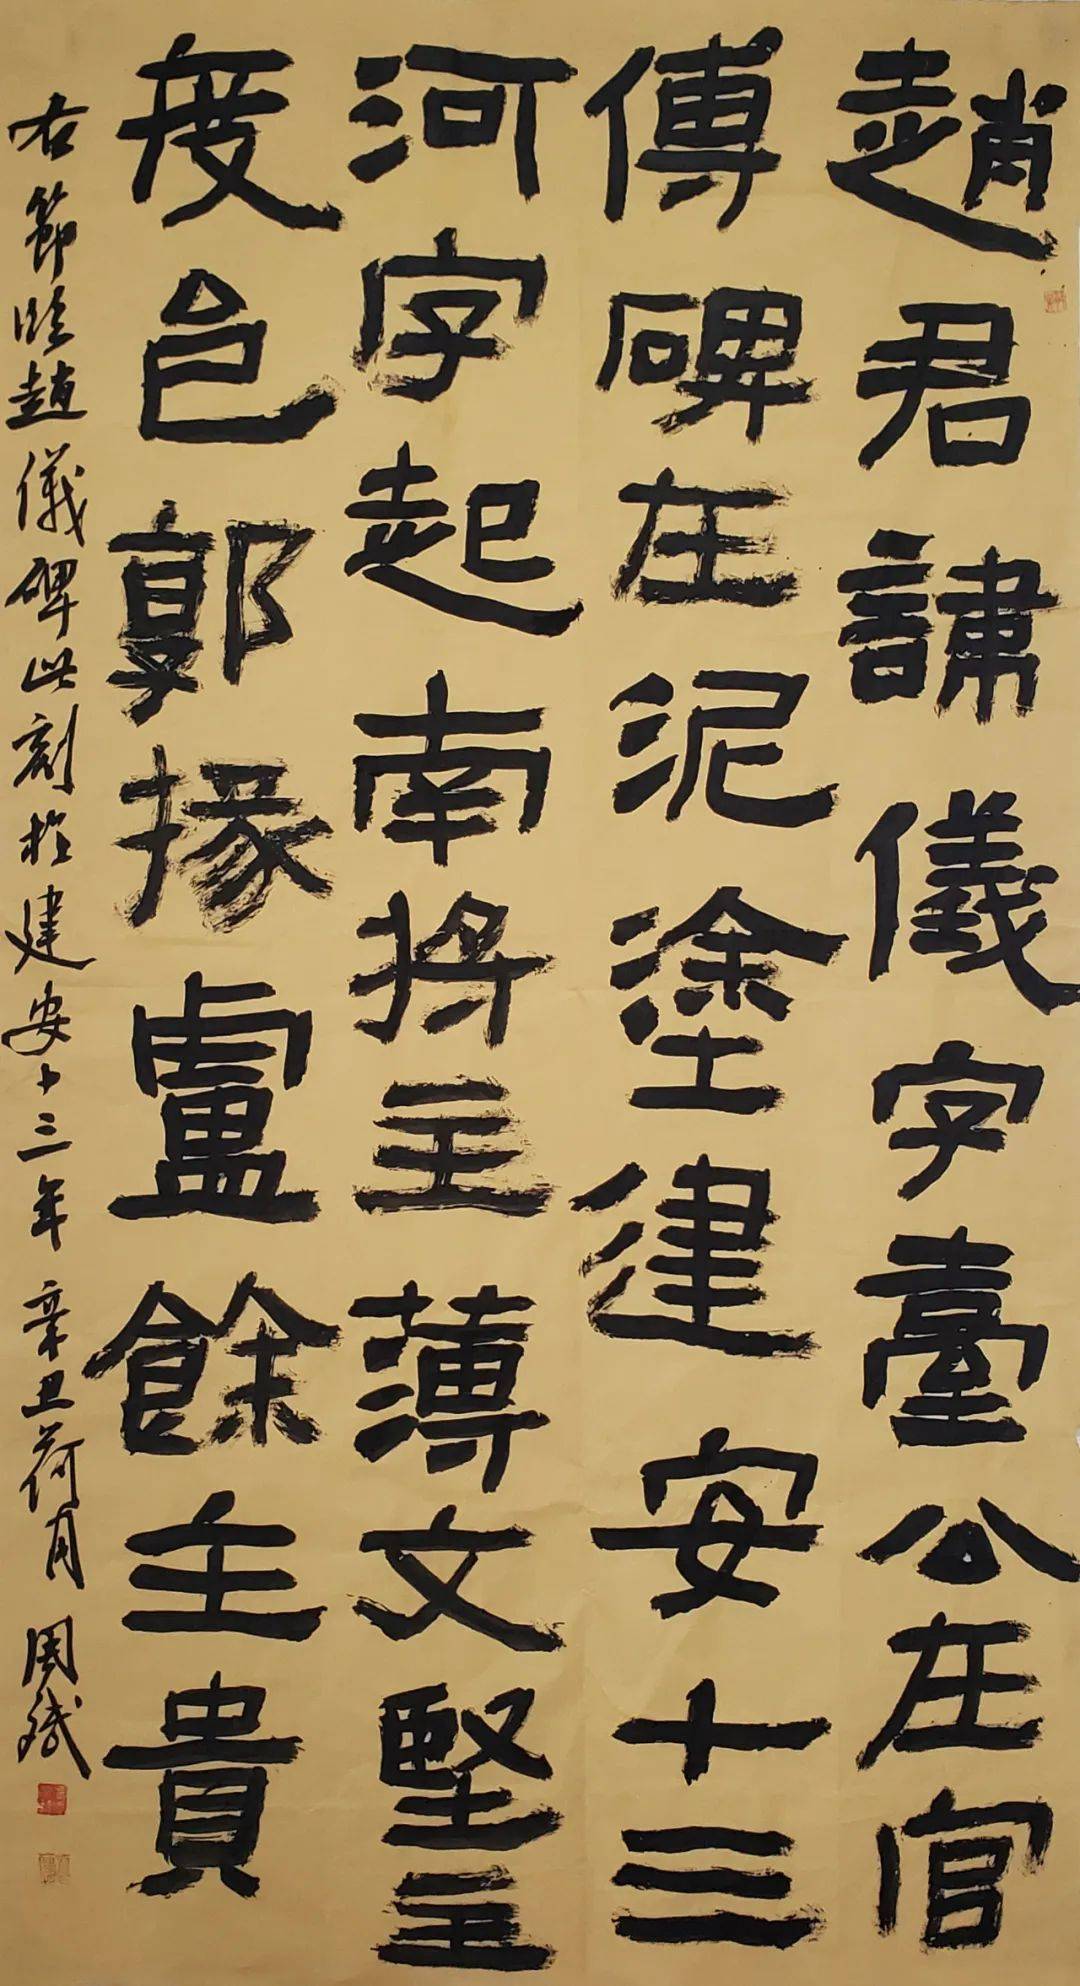 趙君諱儀字臺公在官
傅碑在泥塗建安十三
河字起南將主薄文堅主
度邑郭掾盧餘主貴
右節臨趙儀碑此刻於建安十三年辛丑荷月周斌